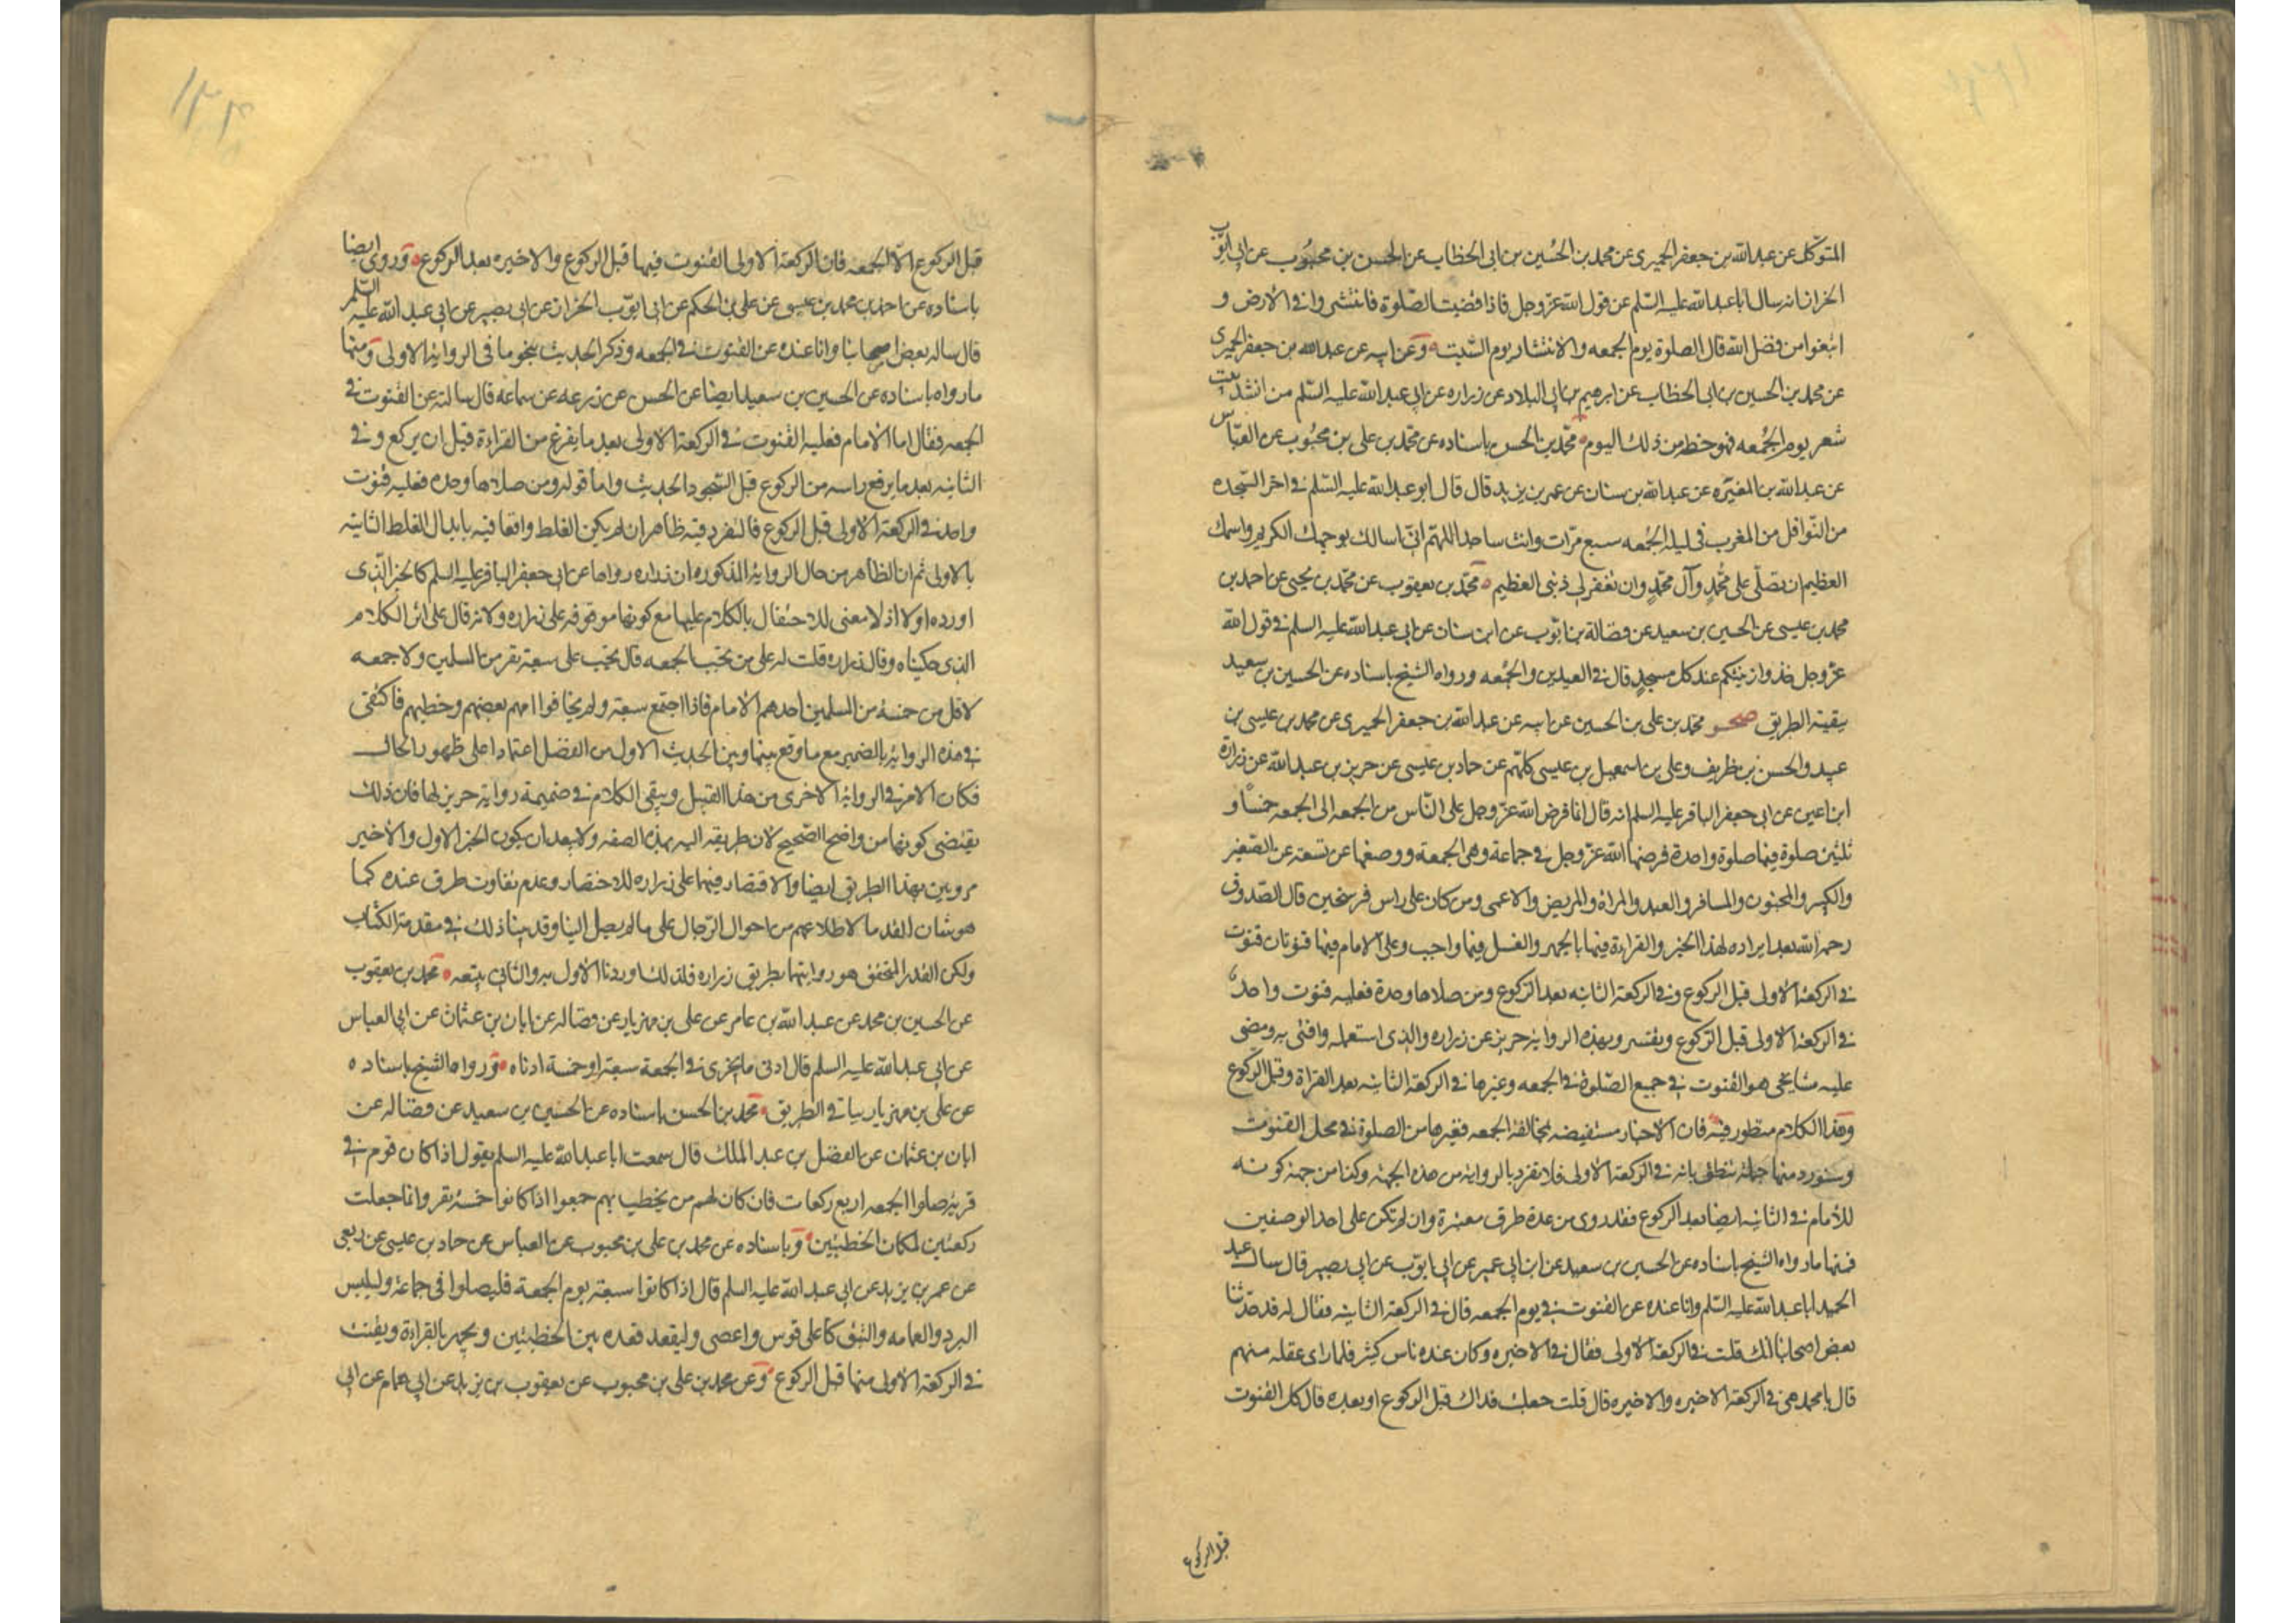 المتوكل عن عبدالله بن جعفر الحميرى عن محمد بن الحسين بن ابى الخطاب عن الحسن بن محبوب عن ابى ايوب
الخزاز انه سال ابا عبدالله عليه السلم عن قول الله عز وجل فاذا قضيت الصلوة فانتشروا فى الارض و
ابتغوا من فضل الله قال الصلوة يوم الجمعه والانتشار يوم السبت وعن ابيه عن عبدالله بن جعفر الحميرى
عن محمد بن الحسين بن ابى الخطاب عن ابرهيم بن ابى البلاد عن زراره عن ابى عبدالله عليه السلم من انشد بيت
شعر يوم الجمعه فهو حظه من ذلك اليوم محمد بن الحسن باسناده عن محمد بن على بن محبوب عن العباس
عن عبدالله بن المغيره عن عبدالله بن سنان عن عمر بن يزيد قال قال ابو عبدالله عليه السلم فى اخر السجده
من النوافل من المغرب فى ليلة الجمعه سبع مرات وانت ساجد اللهم انى اسالك بوجهك الكريم واسمك
العظيم ان تصلى على محمد وآل محمد وان تغفر لى ذنبى العظيم محمد بن يعقوب عن محمد بن يحيى عن احمد بن
محمد بن عيسى عن الحسين بن سعيد عن فضالة بن ايوب عن ابن سنان عن ابى عبدالله عليه السلم فى قول الله
عز وجل خذوا زينتكم عند كل مسجد قال فى العيدين والجمعه ورواه الشيخ باسناده عن الحسين بن سعيد
ببقية الطريق صحر محمد بن على بن الحسين عن ابيه عن عبدالله بن جعفر الحميرى عن محمد بن عيسى بن
عبيد والحسن بن ظريف وعلى بن اسمعيل بن عيسى كلهم عن حماد بن عيسى عن حريز بن عبدالله عن زرارة
ابن اعين عن ابى جعفر الباقر عليه السلم انه قال انما فرض الله عز وجل على الناس من الجمعه الى الجمعه خمسا و
ثلثين صلوة فيها صلوة واحدة فرضها الله عز وجل فى جماعة وهى الجمعة ووضعها عن تسعة عن الصغير
والكبير والمجنون والمسافر والعبد والمراة والمريض والاعمى ومن كان على راس فرسخين قال الصدوق
رحمه الله بعد ايراده لهذا الخبر والقراءة فيها بالجهر والغسل فيها واجب وعلى الامام فيها قنوتان قنوت
فى الركعة الاولى قبل الركوع وفى الركعة الثانيه بعد الركوع ومن صلاها وحدة فعليه قنوت واحد
فى الركعة الاولى قبل الركوع وبهذه الرواية حريز عن زراره والذى استعمله وافتى به ومضى
عليه مشايخى هو القنوت فى جميع الصلوة فى الجمعه وغيرها فى الركعة الثانيه بعد القراة وقبل الركوع
وهذا الكلام منظور فيه فان الاخبار مستفيضه بمخالفة الجمعه فغيرها من الصلوة فى محل القنوت
وسنورد منها جملة تنطق بانه فى الركعة الاولى فلا تفرد بالرواية من هذه الجهة وكذا من جهة كونه
للامام فى الثانيه ايضا بعد الركوع فقد روى من عدة طرق معتبرة وان لم تكن على احد الوصفين
فمنها ما رواه الشيخ باسناده عن الحسين بن سعيد عن ابن ابى عمير عن ابى ايوب عن ابى بصير قال سال عبد
الحميد ابا عبدالله عليه السلم وانا عنده عن القنوت فى يوم الجمعه قال فى الركعة الثانيه فقال له قد حدثنا
بعض اصحابنا انك قلت فى الركعة الاولى فقال فى الاخيره وكان عنده ناس كثير فلما راى غفلة منهم
قال يا محمد هى فى الركعة الاخيره والاخيره قال قلت جعلت فداك قبل الركوع او بعده قال كل القنوت
قبل الركوع
قبل الركوع الا الجمعه فان الركعة الاولى القنوت فيها قبل الركوع والاخيره بعد الركوع وروى ايضا
باسناده عن احمد بن محمد بن عيسى عن على بن الحكم عن ابى ايوب الخزاز عن ابى بصير عن ابى عبدالله عليه السلم
قال ساله بعض اصحابنا وانا عنده عن القنوت فى الجمعه وذكر الحديث بنحو ما فى الرواية الاولى ومنها
ما رواه باسناده عن الحسين بن سعيد ايضا عن الحسن عن زرعه عن سماعه قال سالته عن القنوت فى
الجمعه فقال اما الامام فعليه القنوت فى الركعة الاولى بعد ما يفرغ من القراءة قبل ان يركع وفى
الثانيه بعد ما يرفع راسه من الركوع قبل السجود الحديث واما قوله ومن صلاها وحده فعليه قنوت
واحد فى الركعة الاولى قبل الركوع فالتفرد فيه ظاهر ان لم يكن الغلط واقعا فيه بابدال الغلط الثانيه
بالاولى ثم ان الظاهر من حال الرواية المذكوره ان زراره رواها عن ابى جعفر الباقر عليه السلم كالخبر الذى
اورده اولا اذ لا معنى للاحتفال بالكلام عليها مع كونها موقوفه على زراره ولانه قال على اثر الكلام
الذى حكيناه وقال زراره قلت له على من تجب الجمعه قال تجب على سبعة نفر من المسلمين ولا جمعه
لاقل من خمسة من المسلمين احدهم الامام فاذا اجتمع سبعة ولم يخافوا امهم بعضهم وخطبهم فاكتفى
فى هذه الرواية بالضمير مع ما وقع بينها وبين الحديث الاول من الفصل اعتمادا على ظهور الحال
فكان الامر فى الرواية الاخرى من هذا القبيل ويبقى الكلام فى ضميمة رواية حريز لها فان ذلك
يقتضى كونها من واضح الصحيح لان طريقه اليه بهذه الصفه ولا يبعد ان يكون الخبر الاول والاخير
مرويين بهذا الطريق ايضا والاقتصار فيهما على زراره للاختصار وعدم تفاوت طرق عنده كما
هو شان القدما لاطلاعهم من احوال الرجال على ما لم يصل الينا وقد بينا ذلك فى مقدمة الكتاب
ولكن القدر المتحقق هو روايتها بطريق زراره فلذلك اوردنا الاول به والثانى بتبعه محمد بن يعقوب
عن الحسين بن محمد عن عبدالله بن عامر عن على بن مهزيار عن فضاله عن ابان بن عثمان عن ابى العباس
عن ابى عبدالله عليه السلم قال ادنى ما يجزى فى الجمعة سبعة او خمسة ادناه ورواه الشيخ باسناده
عن على بن مهزيار بباقى الطريق محمد بن الحسن باسناده عن الحسين بن سعيد عن فضاله عن
ابان بن عثمان عن الفضل بن عبد الملك قال سمعت ابا عبدالله عليه السلم يقول اذا كان قوم فى
قرية صلوا الجمعه اربع ركعات فان كان لهم من يخطب بهم جمعوا اذا كانوا خمسة نفر وانما جعلت
ركعتين لمكان الخطبتين وباسناده عن محمد بن على بن محبوب عن العباس عن حماد بن عيسى عن ربعى
عن عمر بن يزيد عن ابى عبدالله عليه السلم قال اذا كانوا سبعة يوم الجمعة فليصلوا فى جماعة وليلبس
البرد والعمامه وليتوكا على قوس وا عصى وليقعد قعده بين الخطبتين ويجهر بالقراءة ويقنت
فى الركعة الاولى منها قبل الركوع وعن محمد بن على بن محبوب عن يعقوب بن يزيد عن ابى همام عن ابى